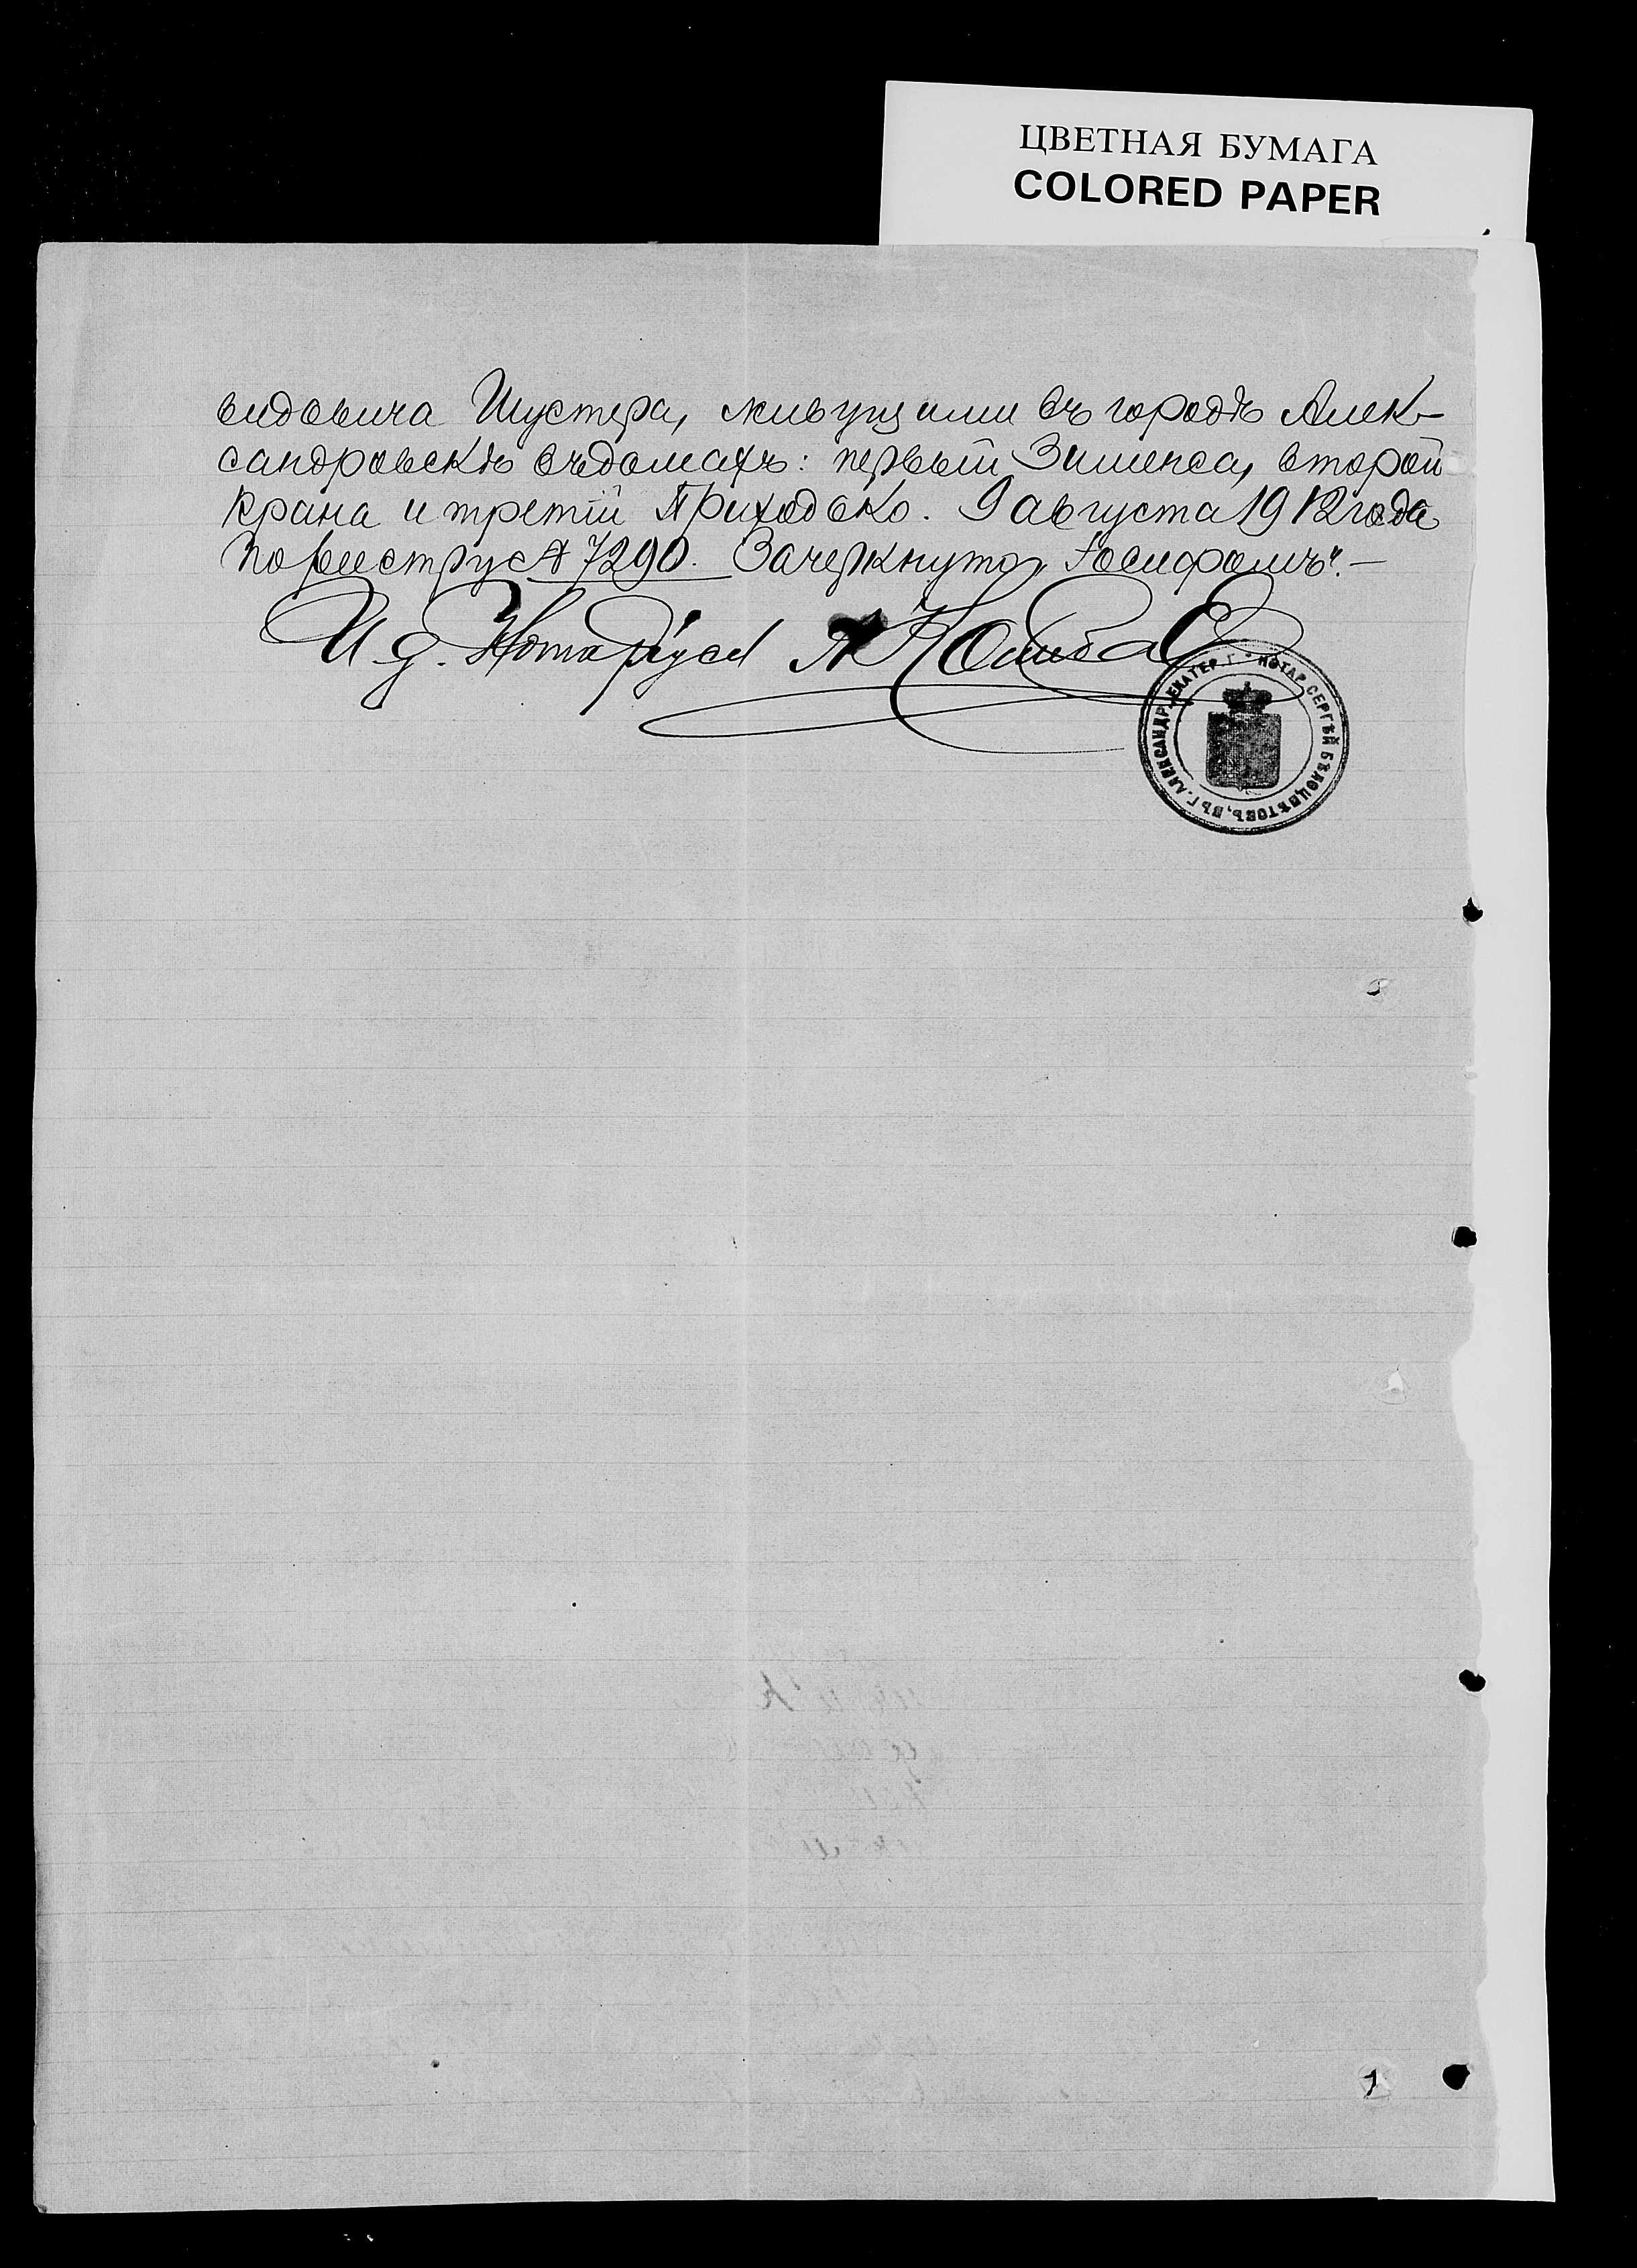 ЦВЕТНАЯ БУМАГА
COLORED PAPER
видовича Шустера, живущими въ городѣ Алек-
сандровскѣ въ домахъ: первый Зименса, второй
Крана и третій Приходько. 9 августа 1912 года
По реестру № 7290. Зачеркнуто „Іосифомъ“.—
И. д. Нотаріуса
НОТАР. СЕРГѢЙ БѢЛОЦВѢТОВЪ, ВЪ Г. АЛЕКСАНДР. ЕКАТЕР. Г.